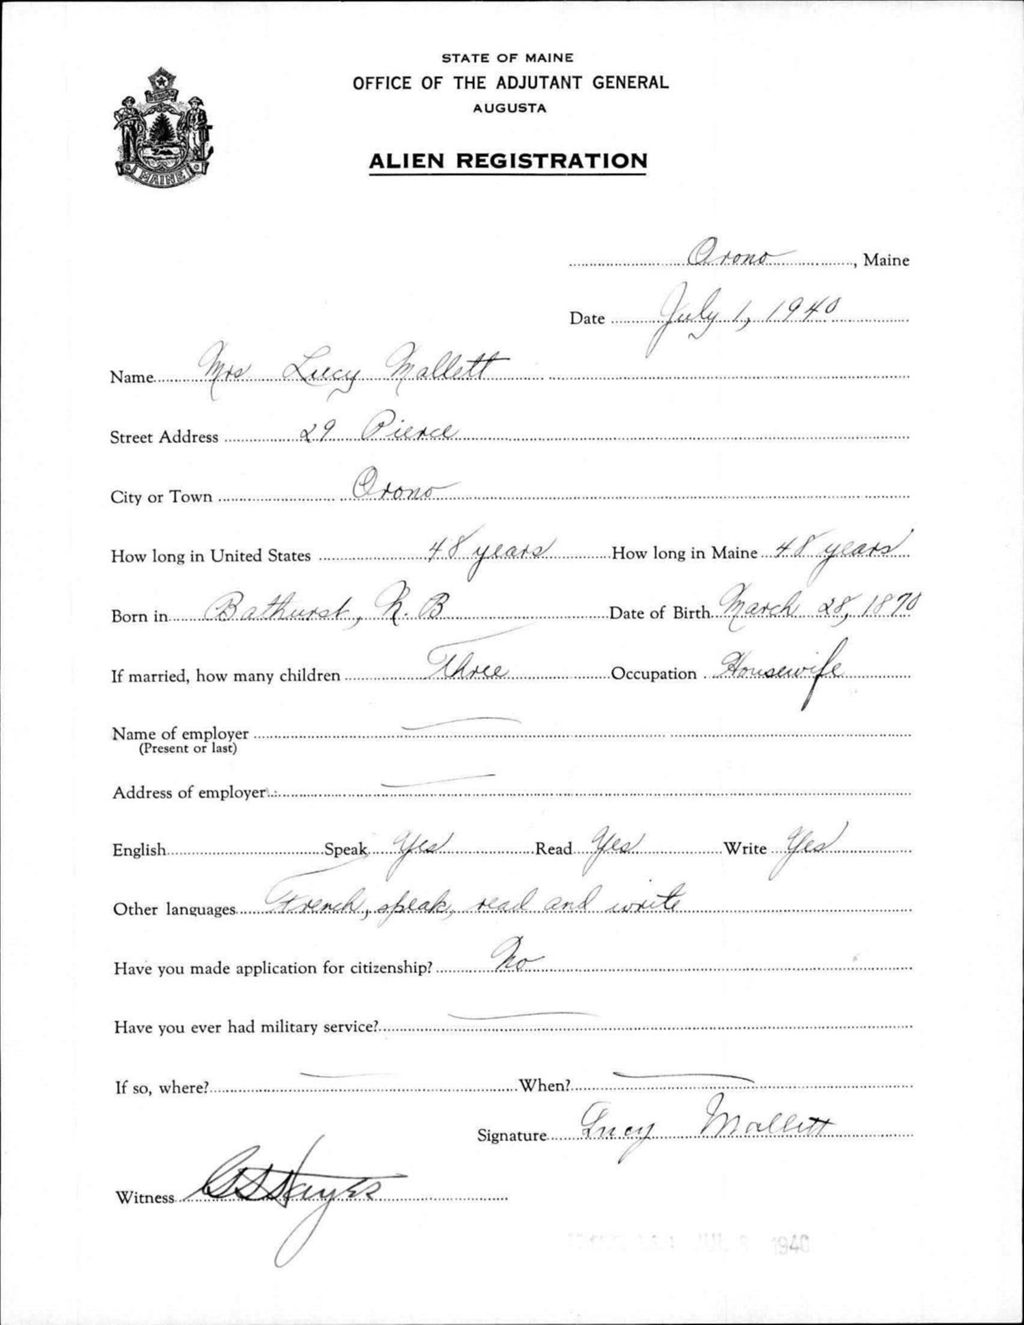 STATE OF MAINE
OFFICE OF THE ADJUTANT GENERAL
AUGUSTA
ALIEN REGISTRATION
MAINE
Orono, Maine
Date July 1, 1940
Name Mrs Lucy Mallett
Street Address 29 Pierce
City or Town Orono
How long in United States 48 years How long in Maine 48 years
Born in Bathurst, N. B Date of Birth March 28, 1870
If married, how many children Three Occupation Housewife
Name of employer
(Present or last)
Address of employer
English Speak Yes Read Yes Write Yes
Other languages French, speak, read and write
Have you made application for citizenship? No
Have you ever had military service?
If so, where? When?
Signature Lucy Mallett
Witness
1940